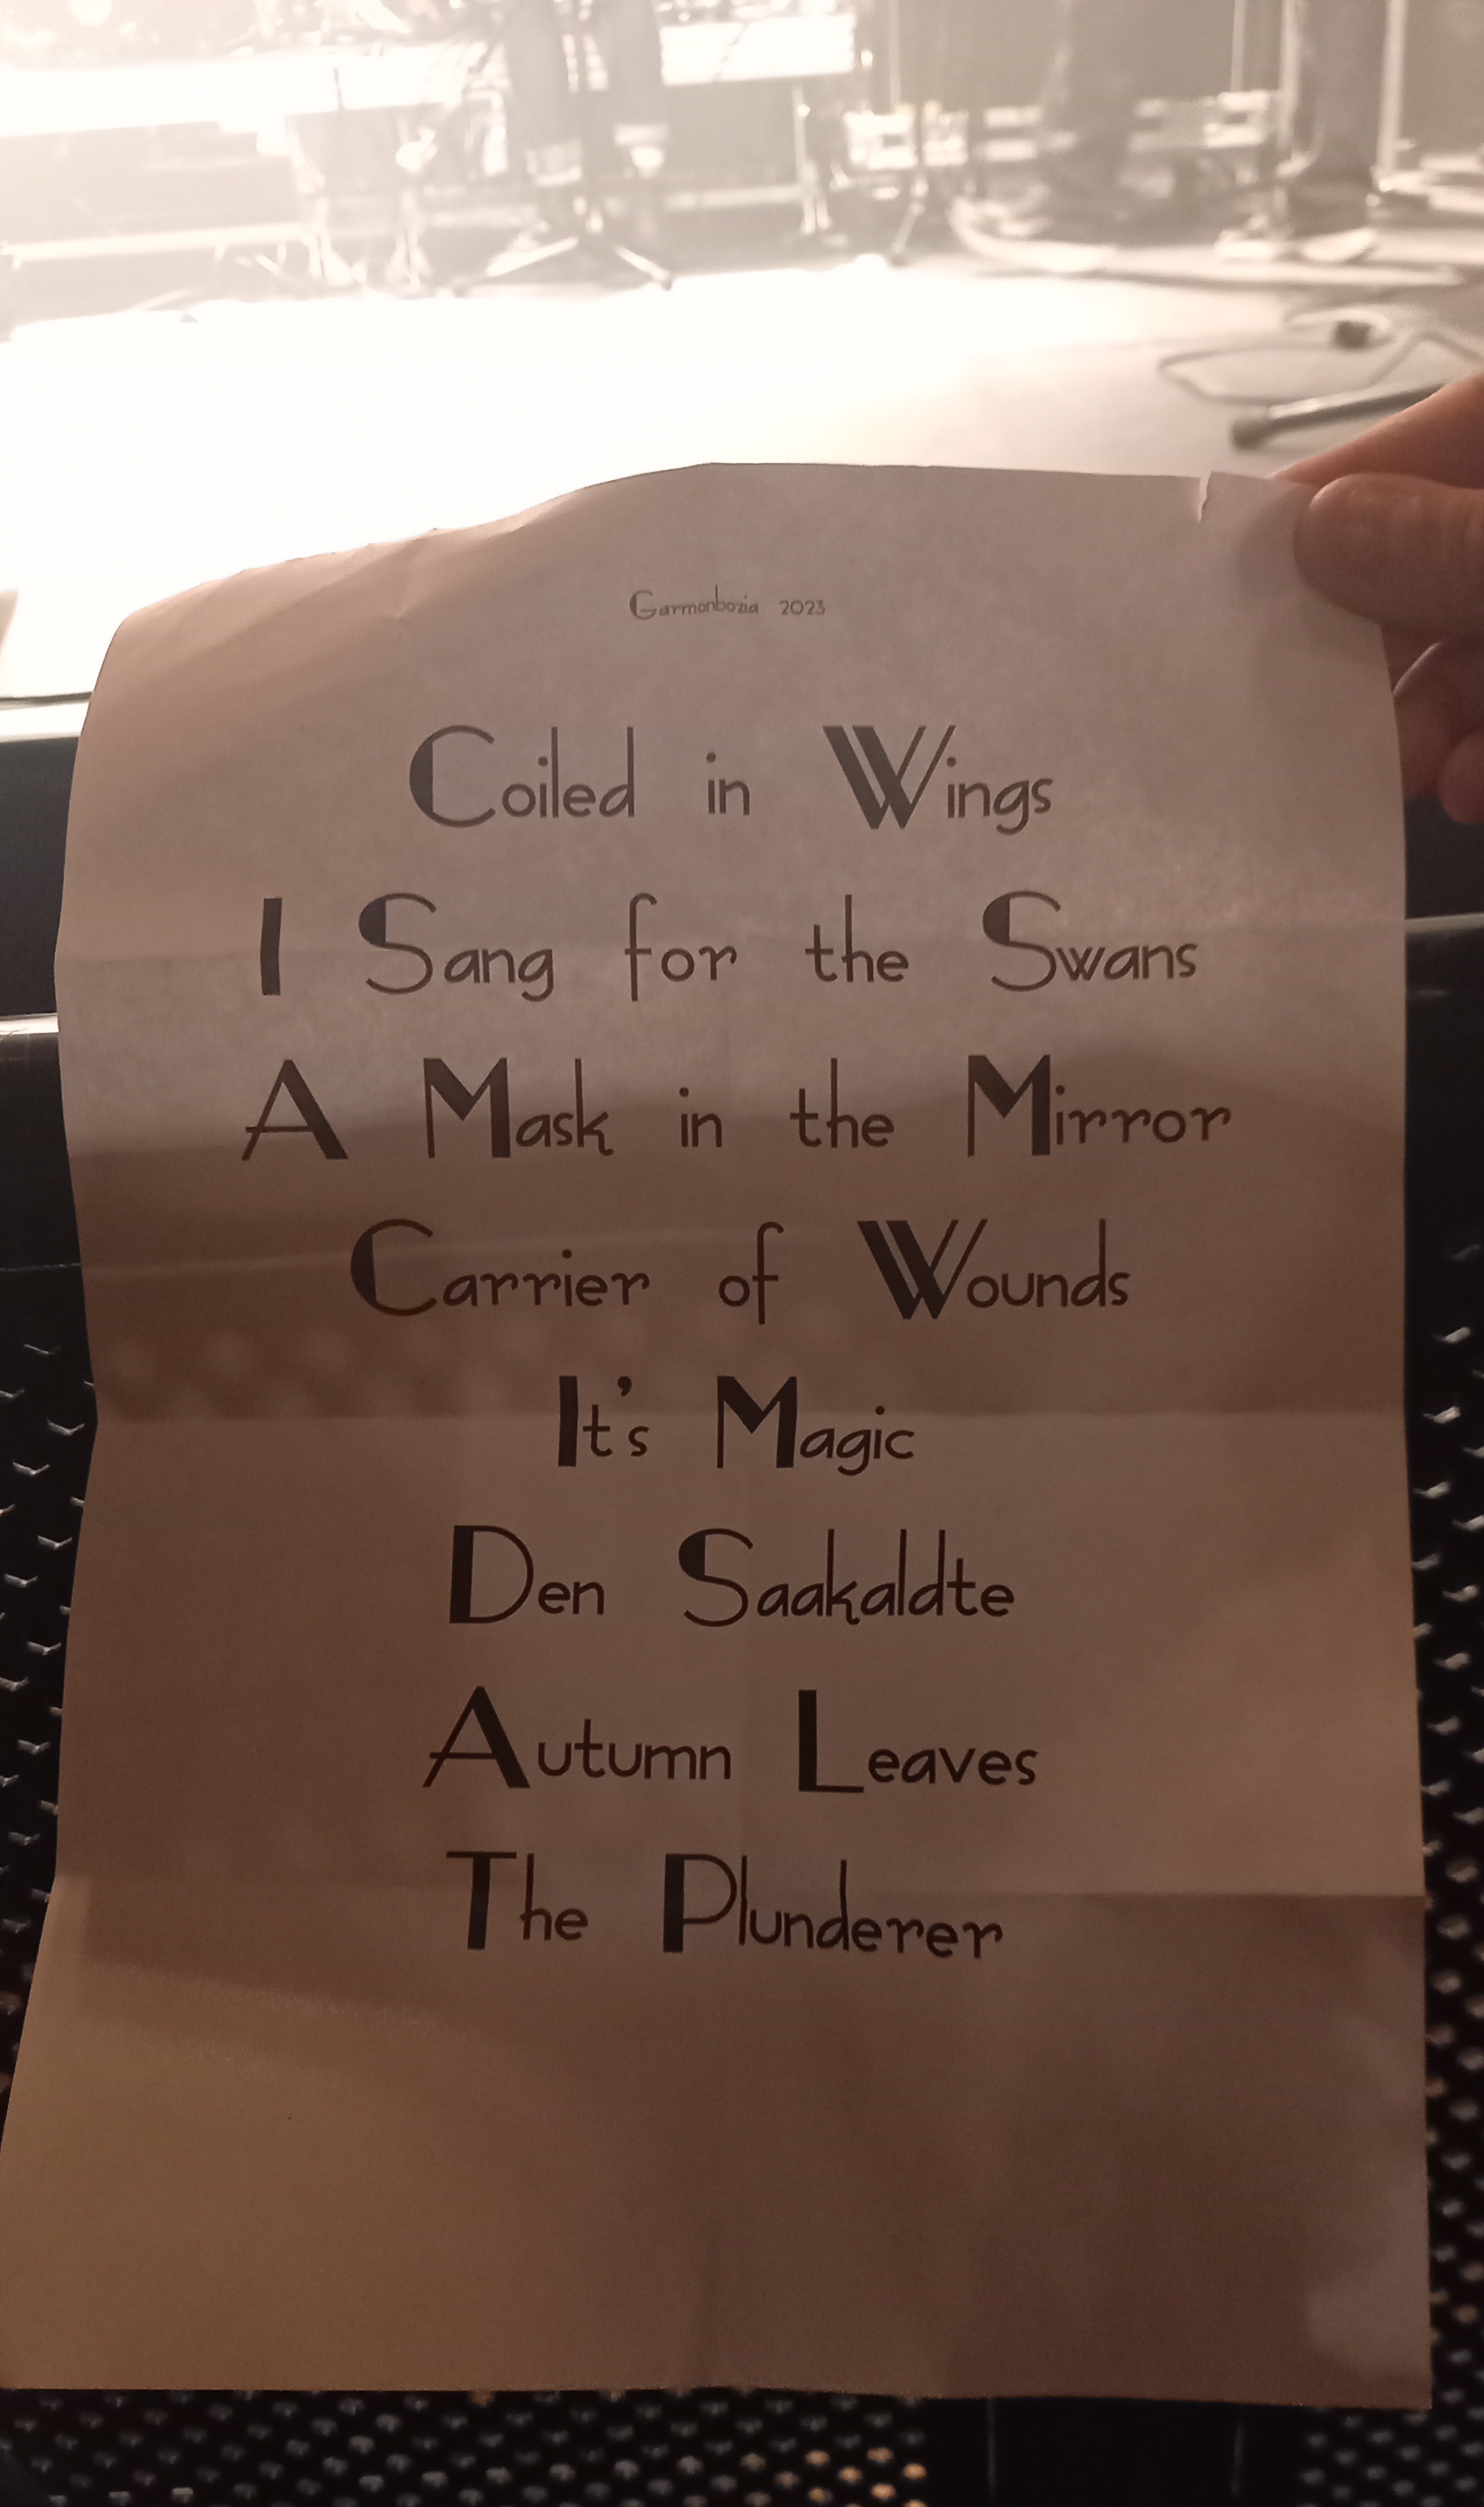 Garmonbozia 2023
Coiled in Wings
I Sang for the Swans
A Mask in the Mirror
Carrier of Wounds
It's Magic
Den Saakaldte
Autumn Leaves
The Plunderer